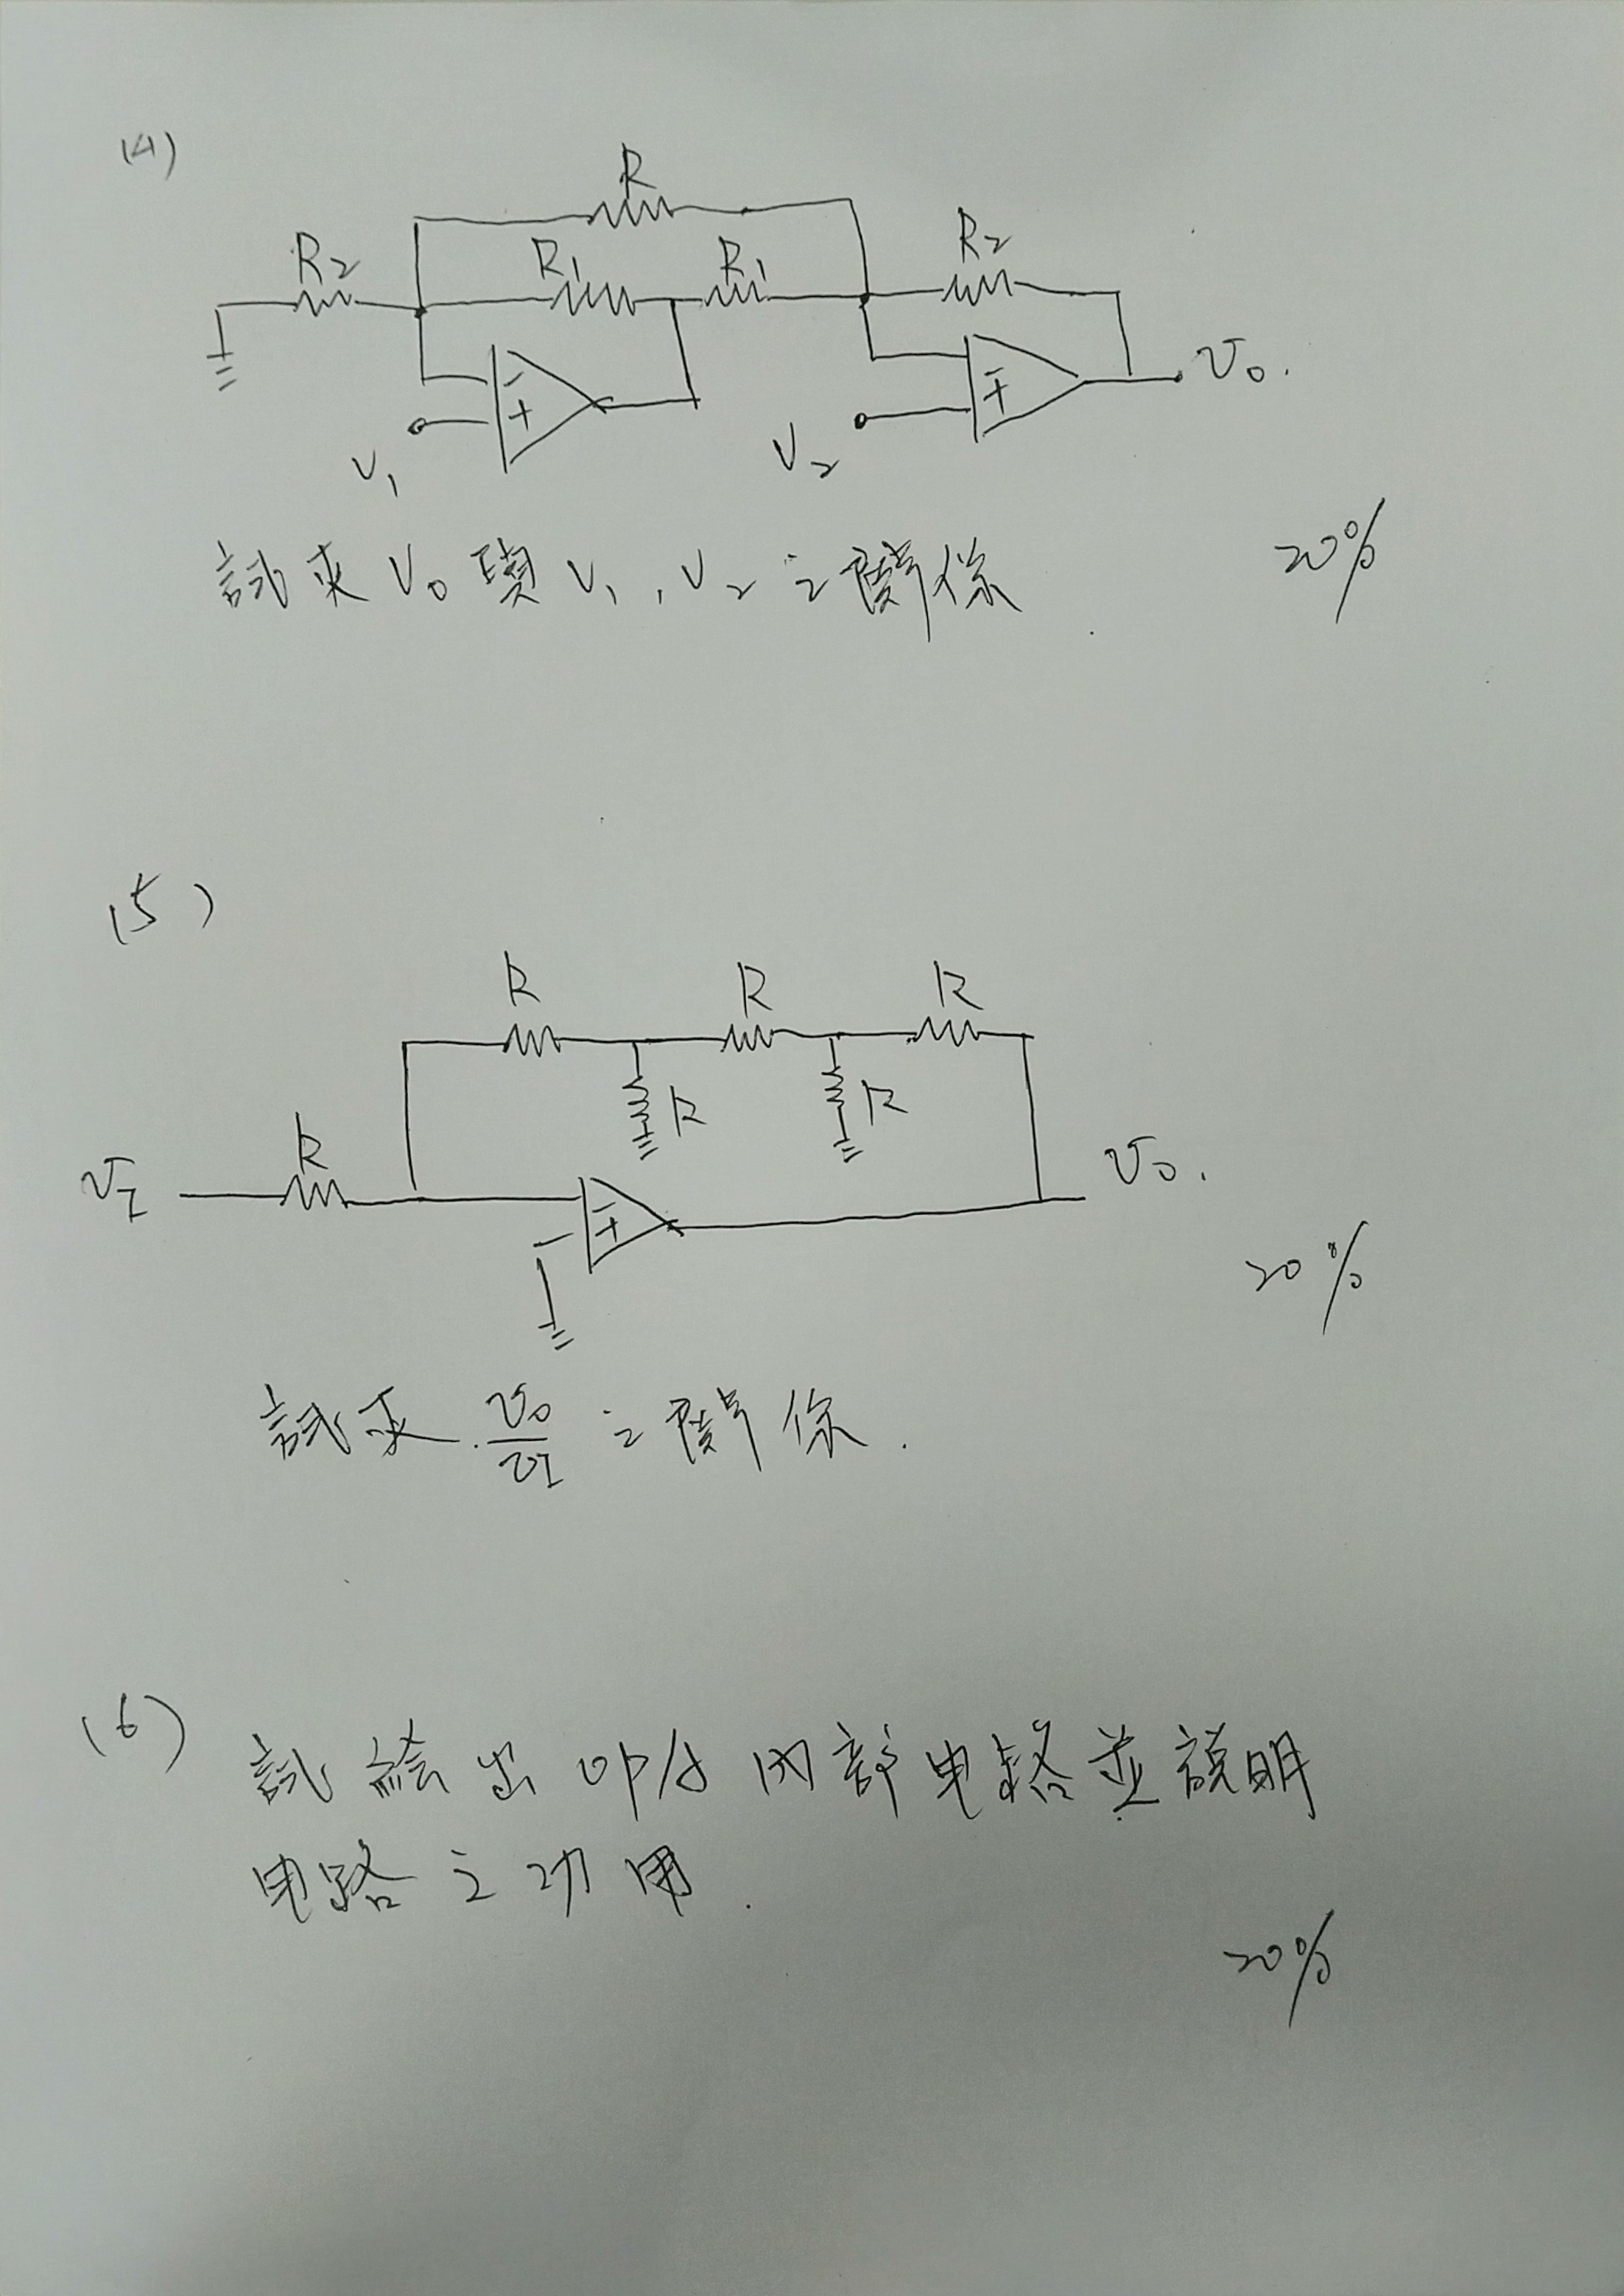 (4)
R
R2 R1 R1 R2
- + - + Vo.
V1 V2
試求 Vo 與 V1, V2 之關係 20%
(5)
R R R
R R
R
VI - + Vo.
20%
試求 Vo/VI 之關係.
(6) 試繪出 OPA 內部电路並說明
电路之功用.
20%